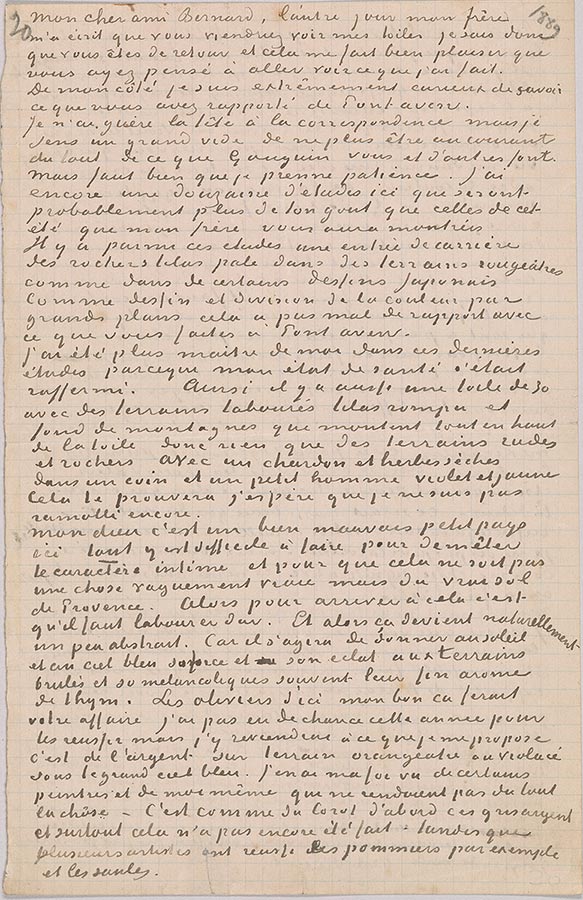 20 1889
mon cher ami Bernard, l'autre jour mon frère
m'a écrit que vous viendrez voir mes toiles je sais donc
que vous êtes de retour et cela me fait bien plaisir que
vous ayez pensé à aller voir ce que j'ai fait.
De mon côté je suis extrêmement curieux de savoir
ce que vous avez rapporté de Pont aven.
Je n'ai guère la tête à la correspondence mais je
sens un grand vide de ne plus être au courant
du tout de ce que Gauguin vous et d'autres font.
Mais faut bien que je prenne patience. J'ai
encore une douzaine d'etudes ici que seront
probablement plus de ton gout que celles de cet
été que mon frère vous aura montrées
Il y a parmi ces etudes une entrée de carrière
des rochers lilas pale dans des terrains rougeâtres
comme dans de certains dessins japonais
Comme dessin et division de la couleur par
grands plans cela a pas mal de rapport avec
ce que vous faites à Pont aven.
J'ai été plus maitre de moi dans ces dernières
études parceque mon état de santé s'était
raffermi. Ainsi il y a aussi une toile de 30
avec des terrains labourés lilas rompu et
fond de montagnes que montent tout en haut
de la toile donc rien que des terrains rudes
et rochers avec un chardon et herbes sèches
dans un coin et un petit homme violet et jaune
Cela te prouvera j'espère que je ne suis pas
ramolli encore.
Mon dieu c'est un bien mauvais petit pays
ici tout y est difficile à faire pour demêler
le caractère intime et pour que cela ne soit pas
une chose vaguement vraie mais du vrai sol
de Provence. Alors pour arriver à cela c'est
qu'il faut labourer dur. Et alors ça devient naturellement
un peu abstrait. Car il s'agira de donner au soleil
et au ciel bleu sa force et son eclat aux terrains
brulés et si melancoliques souvent leur fin arome
de thym. Les oliviers d'ici mon bon ça ferait
votre affaire j'ai pas eu de chance cette année pour
les reussir mais j'y reviendrai à ce que je me propose
c'est de l'argent sur terrain orangeatre ou violacé
sous le grand ciel bleu. J'en ai ma foi vu de certains
peintres et de moi même que ne rendaient pas du tout
la chôse – C'est comme du Corot d'abord ces gris argent
et surtout cela n'a pas encore été fait – tandis que
plusieurs artistes ont reussi les pommiers par exemple
et les saules.